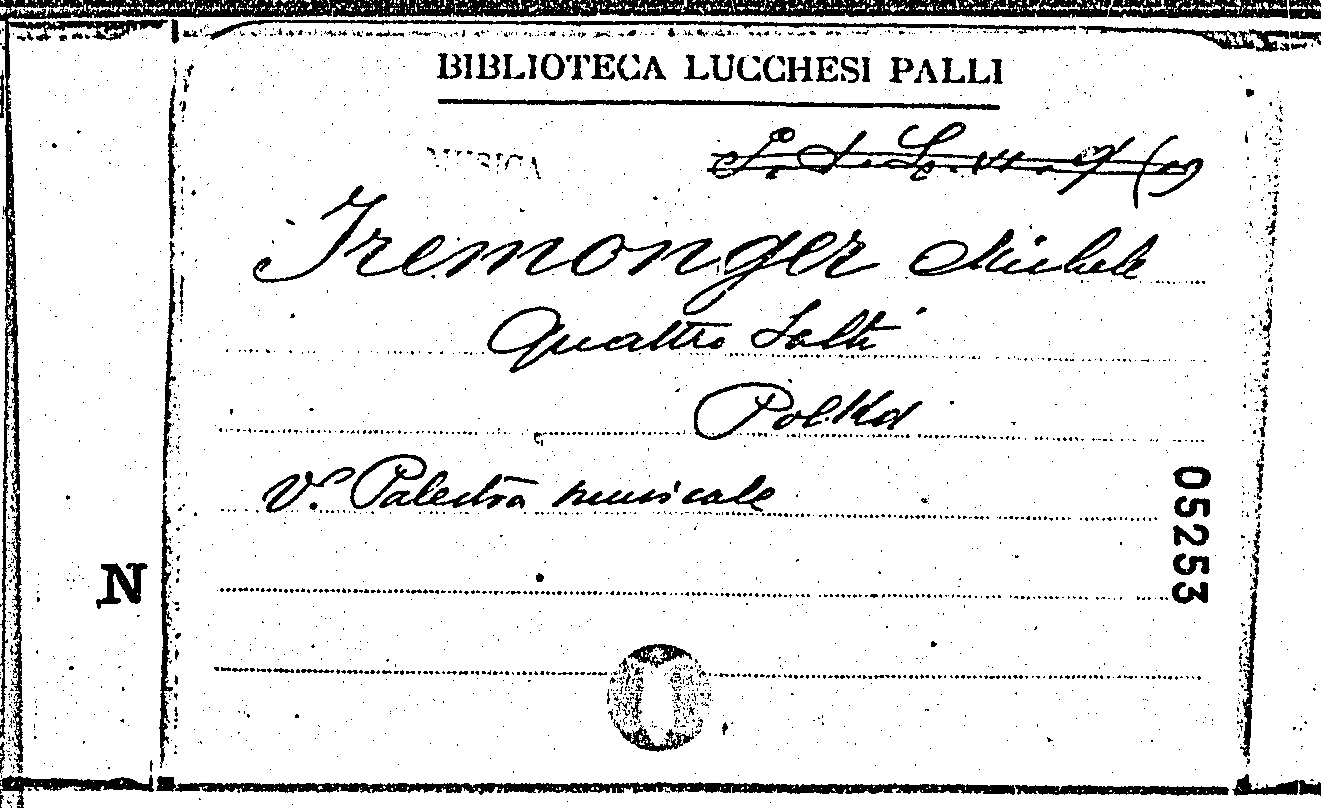 BIBLIOTECA LUCCHESI PALLI
MUSICA
Iremonger Michele
Quattro Salti
Polka
V. Palestra musicale
05253
N